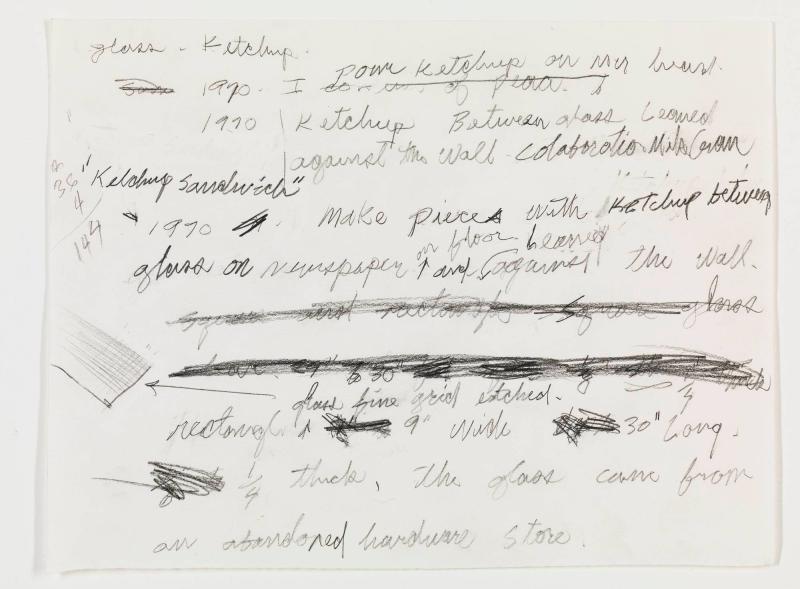 glass - Ketchup.
pour Ketchup on my
1970. I
1970 Ketchup Between glass Leaned
against the wall - Colaboratio
36
4
144
"Ketchup Sandwich"
1970 Make pieces with Ketchup between
on floor Leaned
glass on newspaper and against the wall.
glass
30"
1/4 thick
glass fine grid etched.
rectangl 9" wide 30" Long.
1/4 thick, The glass came from
an abandoned hardware store.